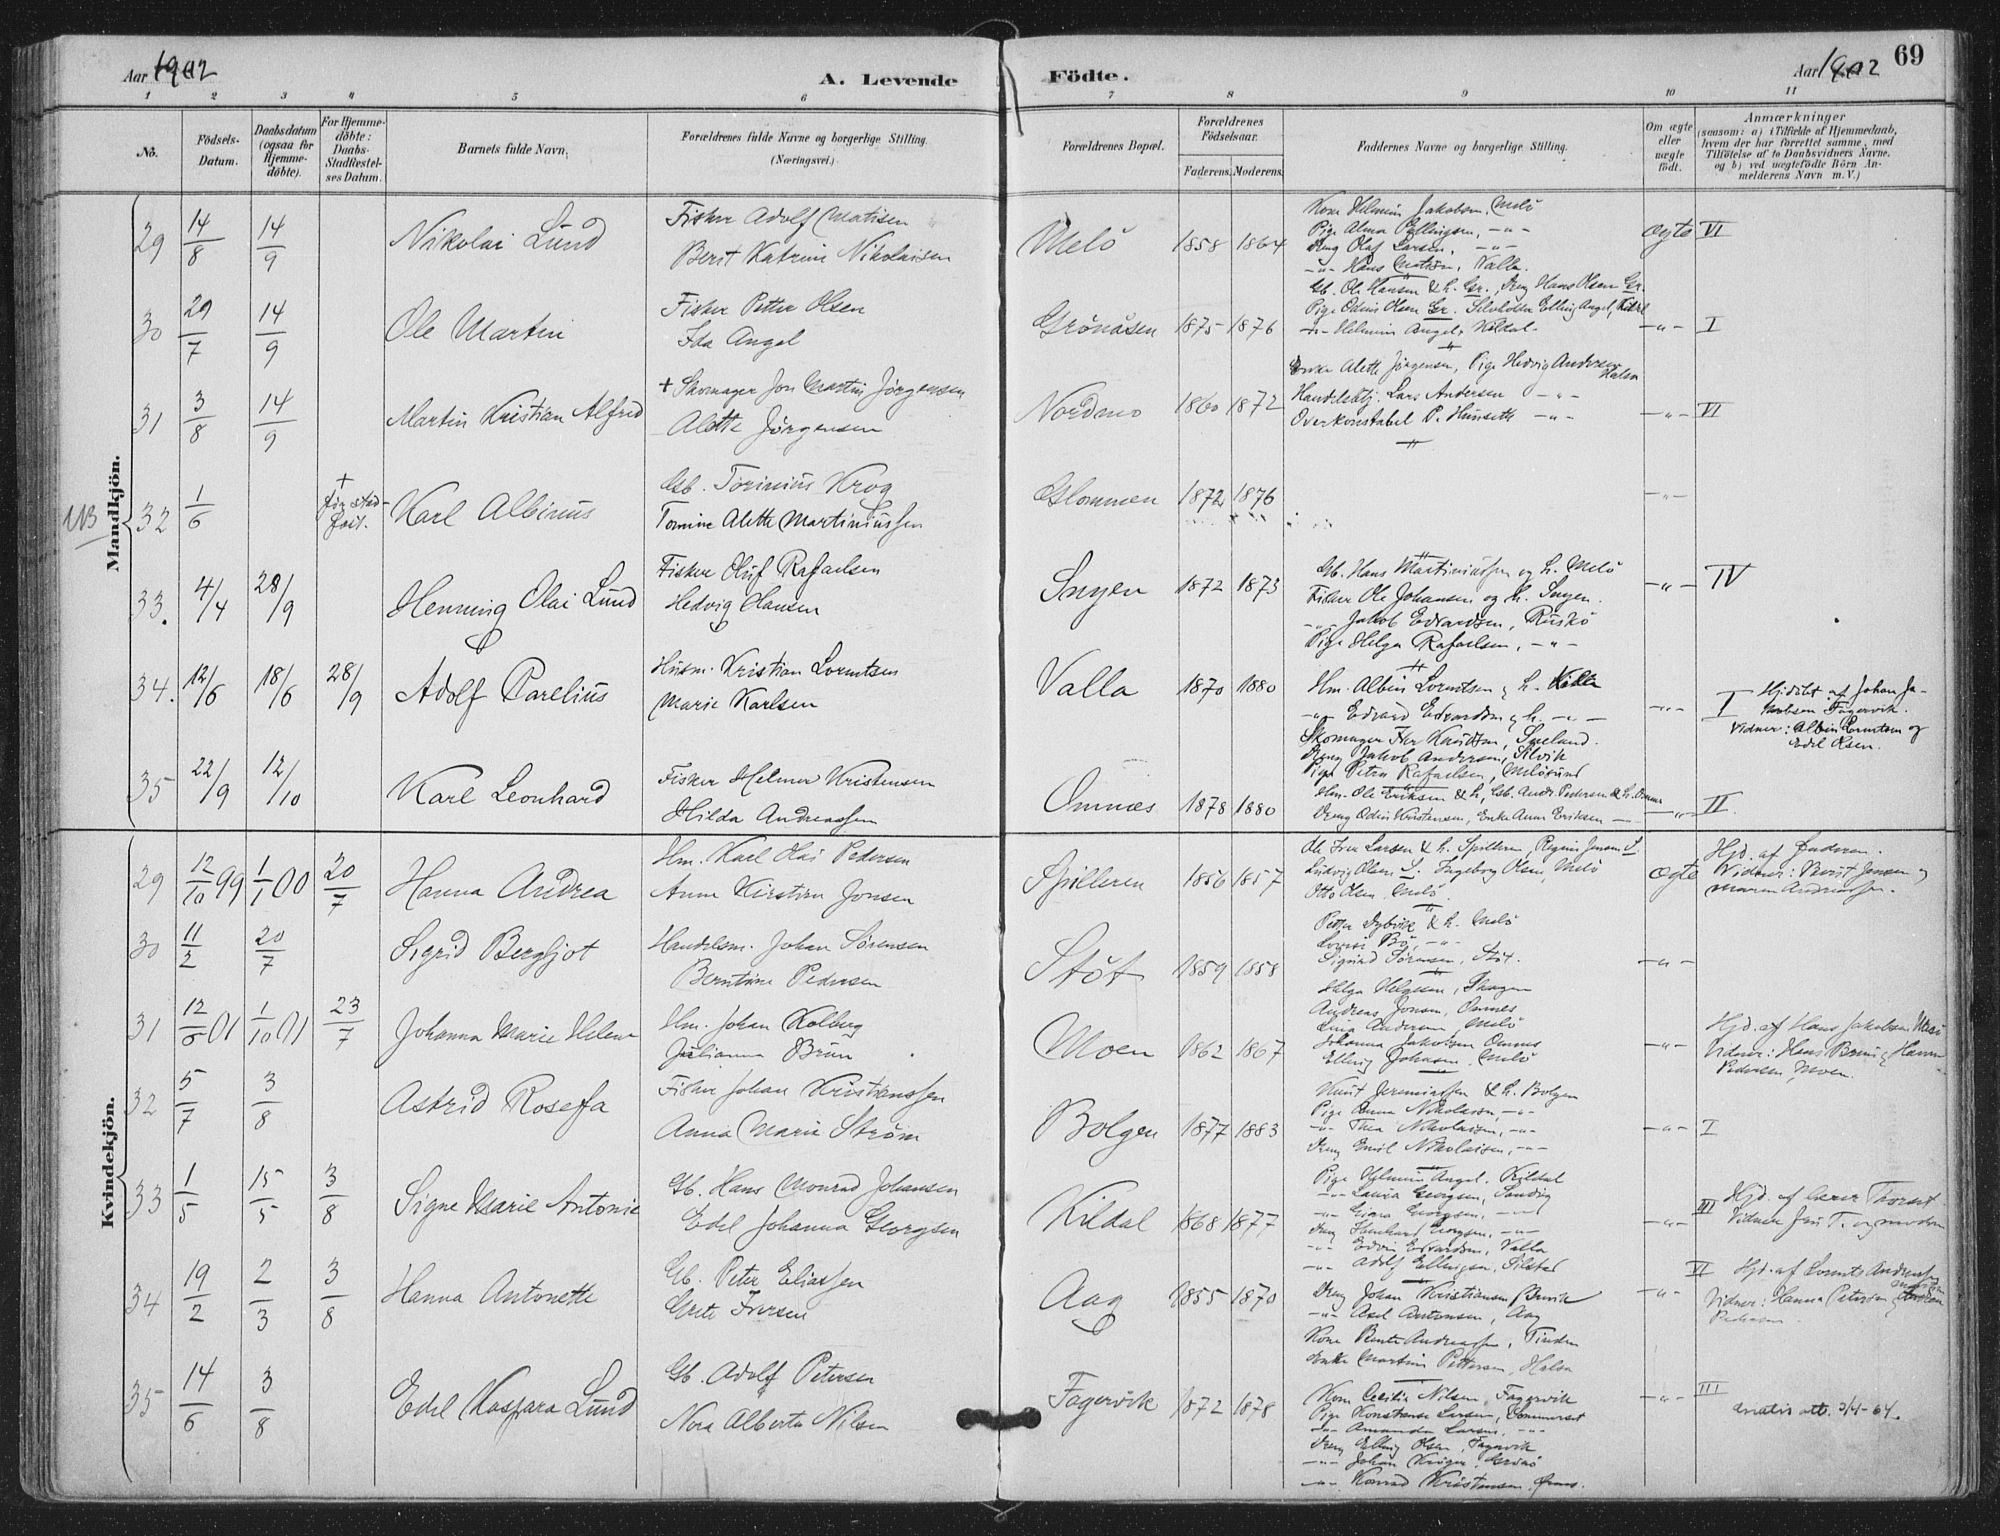 Aar 1902
A. Levende
Födte.
Aar 1902
69
1 2 3 4 5 6 7 8 9 10 11
No.
Födsels-Datum.
Daabsdatum (ogsaa for Hjemme-döbte).
For Hjemme-döbte: Daabs-Stadfæstel-ses Datum.
Barnets fulde Navn.
Forældrenes fulde Navne og borgerlige Stilling. (Næringsvei.)
Forældrenes Bopæl.
Forældrenes Födselsaar.
Faderens. Moderens.
Faddernes Navne og borgerlige Stilling.
Om ægte eller uægte födt.
Anmærkninger
(saasom: a) i Tilfælde af Hjemmedaab, hvem der har forrettet samme, med Tilföielse af to Daabsvidners Navne, og b) ved uægtefödte Börn An-melderens Navn m. V.)
Mandkjön.
29 14/8 14/9 Nikolai Lund
Fisker Adolf Matisen
Berit Katrine Nikolaisen
Melö 1858 1864
Kone Helmine Jakobsen, Melö
Pige Alma Ellingsen, -"-
Dreng Olaf Larsen, -"-
-"- Hans Matisen, Valla.
ægte VI
30 29/7 14/9 Ole Martin
Fisker Petter Olsen
Ida Angel
Grönåsen 1875 1876
Gb. Ole Hansen & h. Gr., Dreng Hans Olsen Gr.
-"- Helmine Angel, Kildal.
-"- I
31 3/8 14/9 Martin Kristian Alfred
+ Skomager Jon Martin Jörgensen
Alette Jörgensen
Nordmo 1860 1872
Enke Alette Jörgensen, Pige Hedvig Andersen Halsa
Handelsbtj. Lars Andersen -"-
Overkonstabel P. Hunseth -"-
-"- VI
NB
32 1/6 + för stad-fæst. Karl Albinus
Gb. Torinius Krog
Tomine Alette Martiniussen
Glommen 1872 1876
-"-
33. 4/4 28/9 Henning Olai Lund
Fisker Oluf Rafaelsen
Hedvig Hansen
Sugen 1872 1873
Gb. Hans Martiniussen og h. Melö
Fisker Ole Johansen og h. Sugen.
-"- Jakob Edvardsen, Ruskö
Pige Helga Rafaelsen, -"-
-"- IV
34. 12/6 18/6 28/9 Adolf Parelius
Husm. Kristian Lorntsen
Marie Karlsen
Valla 1870 1880
Hm. Albin Lorntsen & h. Valla
-"- Edvard Edvardsen & h. -"-
Dreng Jakob Andersen, Silvik
Pige Petra Rafaelsen, Melösund
-"- I Hjdöbt af Johan Ja-kobsen Fagervik.
Vidner: Albin Lorntsen og Edel Olsen.
35 22/9 12/10 Karl Leonhard
Fisker Helmer Kristensen
Hilda Andreassen
Omnæs 1878 1880
Hm. Ole Eriksen & h, Gb. Andr. Pedersen & h. Omnæs
Dreng Odin Kristensen, Enke Anne Eriksen -"-
-"- II
Kvindekjön.
29 12/10 99 1/1 00 20/7 Hanna Andrea
Hm. Karl Olai Pedersen
Anne Kirstine Jonsen
Spilleren 1856 1857
Ludvig Olsen S. Ingeborg Olsen, Melö
Otto Olsen, Melö
ægte Hjd. af Faderen.
30 11/2 20/7 Sigrid Bergljot
Handelsm. Johan Sörensen
Berntine Pedersen
Stöt 1859 1858
Petter Dybvik & h. Melö
Lovise Bö, -"-
Sigurd Sörensen, Stöt.
-"-
31 12/6 01 1/10 01 23/7 Johanna Marie Helene
Hm. Johan Kolberg
Julianna Brun
Moen 1862 1867
Helga Helgesen, Skagen
Andreas Jonsen, Omnes
Lina Andersen, Melö
Johanna Jakobsen Omnes
Elling Johansen, Melö
-"- Hjd. af Hans Jakobsen Melö
Vidner: Hans Brun & Hanna Pedersen, Moen.
32 5/7 3/8 Astrid Roseffa
Fisker Johan Kristianssen
Anna Marie Ström
Bolgen 1877 1883
Knut Jeremiassen & h. Bolgen
Pige Anna Nikolaisen, -"-
-"- Thea Nikolaisen, -"-
Dreng Emil Nikolaisen, -"-
-"- I
33 1/5 15/5 3/8 Signe Marie Antonie
Gb. Hans Monrad Johansen
Edel Johanna Georgsen
Kildal 1868 1877
Pige Helmine Angel, Kildal
-"- Laura Georgsen, Sandvig
Dreng Edvin Edvardsen, Valla
-"- Adolf Ellingsen, Silstad
-"- III
34 19/2 2/3 3/8 Hanna Antonette
Gb. Peter Eliassen
Grete Iversen
Aag 1855 1870
Dreng Johan Kristiansen Brevik
-"- Axel Antonsen, Aag
Kone Bente Andreassen, Tinden
Enke Martine Pettersen, Halsa
-"- VI
35 14/6 3/8 Edel Kaspara Lund
Gb. Adolf Petersen
Nora Alberta Nilsen
Fagervik 1872 1878
Kone Cecilia Nilsen, Fagervik
Pige Konstanse Larsen
-"- Amanda Larsen, -"-
Dreng Elling Olsen, Fagervik
-"- Johan Kröger
-"- Konrad Kristensen
-"- III
Gratis att. 3/4-64.